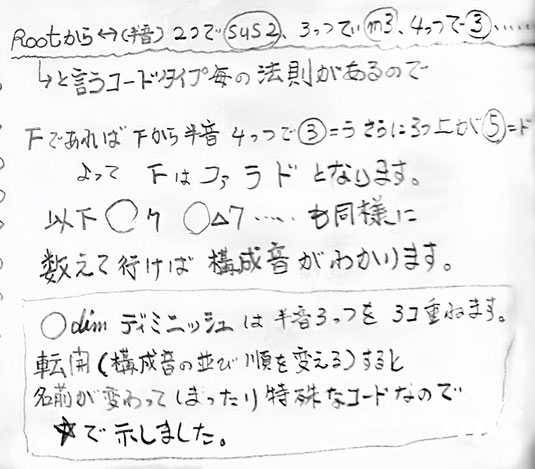 Rootから↔(半音)2つでsus2、3つでm3、4つで③……
↳と言うコードタイプ毎の法則があるので
Fであれば Fから半音4つで③=ラ さらに3つ上が⑤=ド
よって Fはファラドとなります。
以下 ○7 ○△7 …… も同様に
数えて行けば 構成音がわかります。
○dim ディミニッシュは半音3つを3コ重ねます。
転開(構成音の並び順を変える)すると
名前が変わってしまったり特殊なコードなので
☆で示しました。